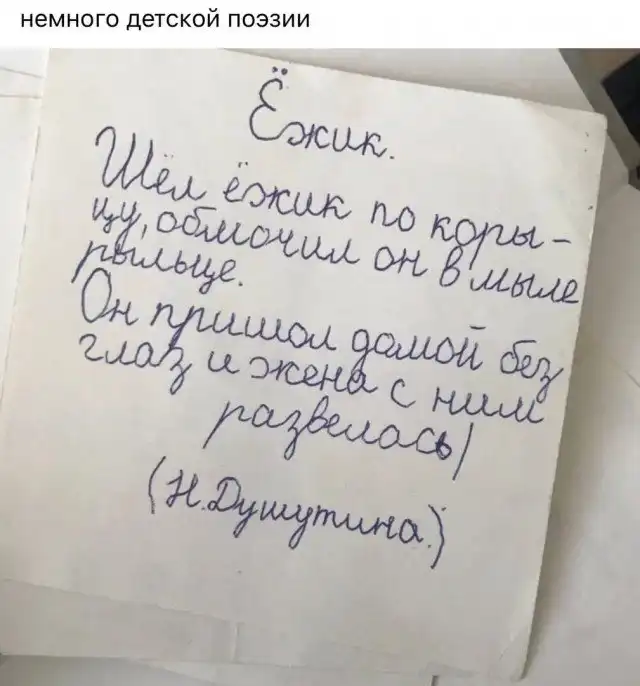 немного детской поэзии
Ёжик.
Шёл ёжик по коры-
цу, обмочил он в мыле
рыльце.
Он пришол домой без
глаз и жена с ним
развелась!
(Н. Душутина.)